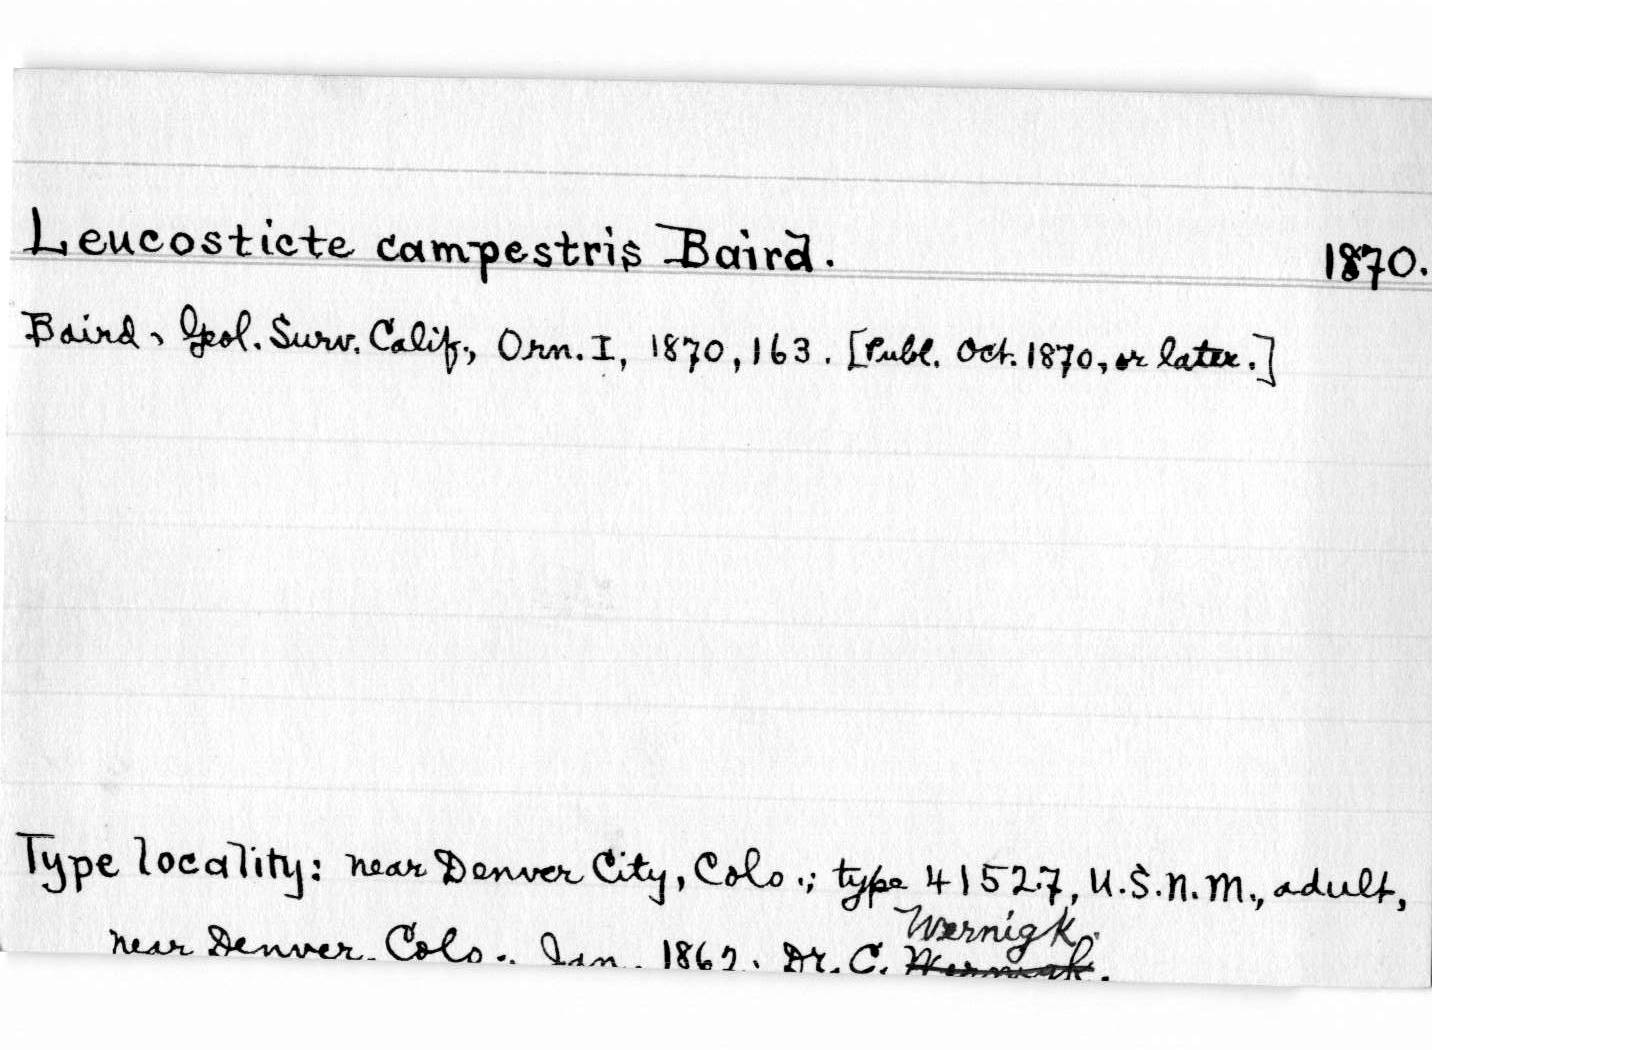 Leucosticte campestris Baird. 1870.
Baird, Geol. Surv. Calif., Orn. I, 1870, 163. [Publ. Oct. 1870, or later.]
Type locality: near Denver City, Colo.; type 41527, U.S.N.M., adult,
Wernigk.
near Denver, Colo., Jan. 1862. Dr. C.